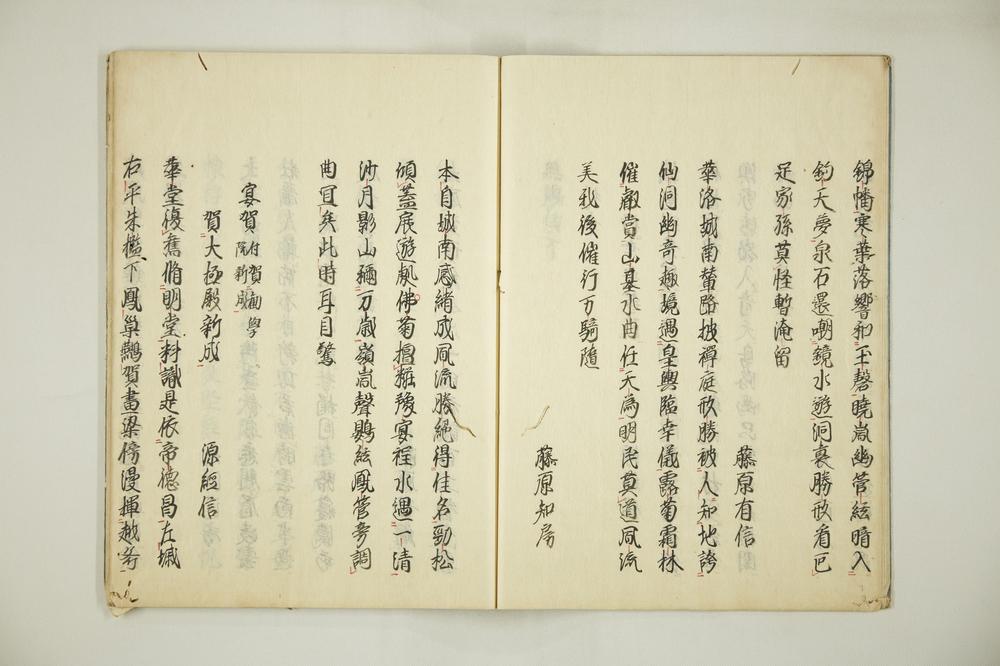 錦幡寒葉落響和玉磬曉嵐幽管絃暗入
鈞天夢泉石還嘲鏡水遊洞裏勝形看已
足家孫莫怪暫淹留
藤原有信
華洛城南輦路披禅庭形勝被人知地誇
仙洞幽奇趣境遇皇輿臨幸儀露菊霜林
催叡賞山基水曲任天為明民莫道風流
美我後催行万騎隨
藤原知房
本自城南感緒成風流勝絶得佳名勁松
傾蓋展遊帆佛菊擅粧豫宴程水遇一清
沙月影山稱万歲嶺嵐聲鷃絃鳳管旁調
曲宜矣此時耳目驚
宴賀付賀勧學院新成
賀大極殿新成
源經信
華堂復舊脩明堂料識是依帝德昌左墄
右平朱檻下鳳巢鷰賀畫梁傍漫揮越